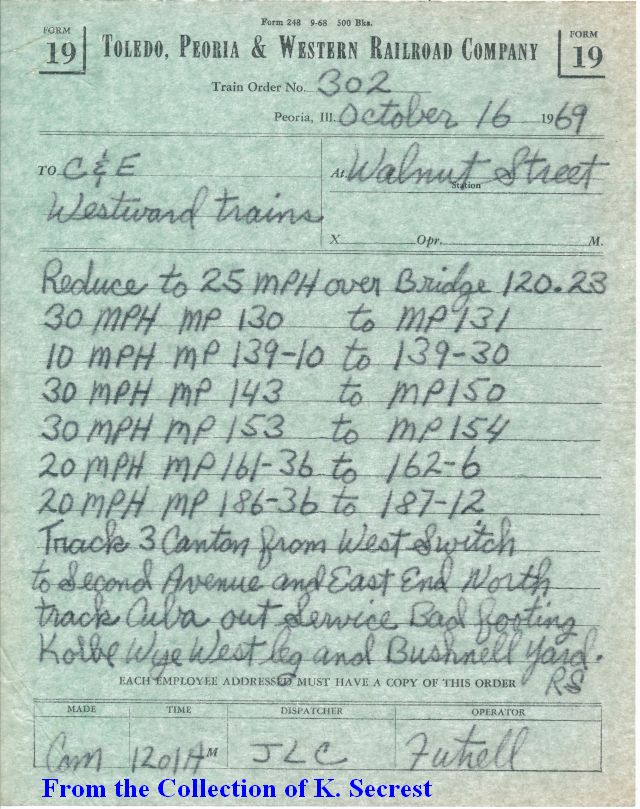 Form 248 9-68 500 Bks.
FORM 19
TOLEDO, PEORIA & WESTERN RAILROAD COMPANY
FORM 19
Train Order No. 302
Peoria, Ill. October 16 1969
TO C&E
At Walnut Street
Station
Westward trains
X Opr. M.
Reduce to 25 MPH over Bridge 120.23
30 MPH MP 130 to MP 131
10 MPH MP 139-10 to 139-30
30 MPH MP 143 to MP 150
30 MPH MP 153 to MP 154
20 MPH MP 161-36 to 162-6
20 MPH MP 186-36 to 187-12
Track 3 Canton from West Switch
to Second Avenue and East End North
track Cuba out Service Bad footing
Kolbe Wye West leg and Bushnell Yard.
RS
EACH EMPLOYEE ADDRESSED MUST HAVE A COPY OF THIS ORDER
MADE TIME DISPATCHER OPERATOR
Com 1201A M JLC Futrell
From the Collection of K. Secrest